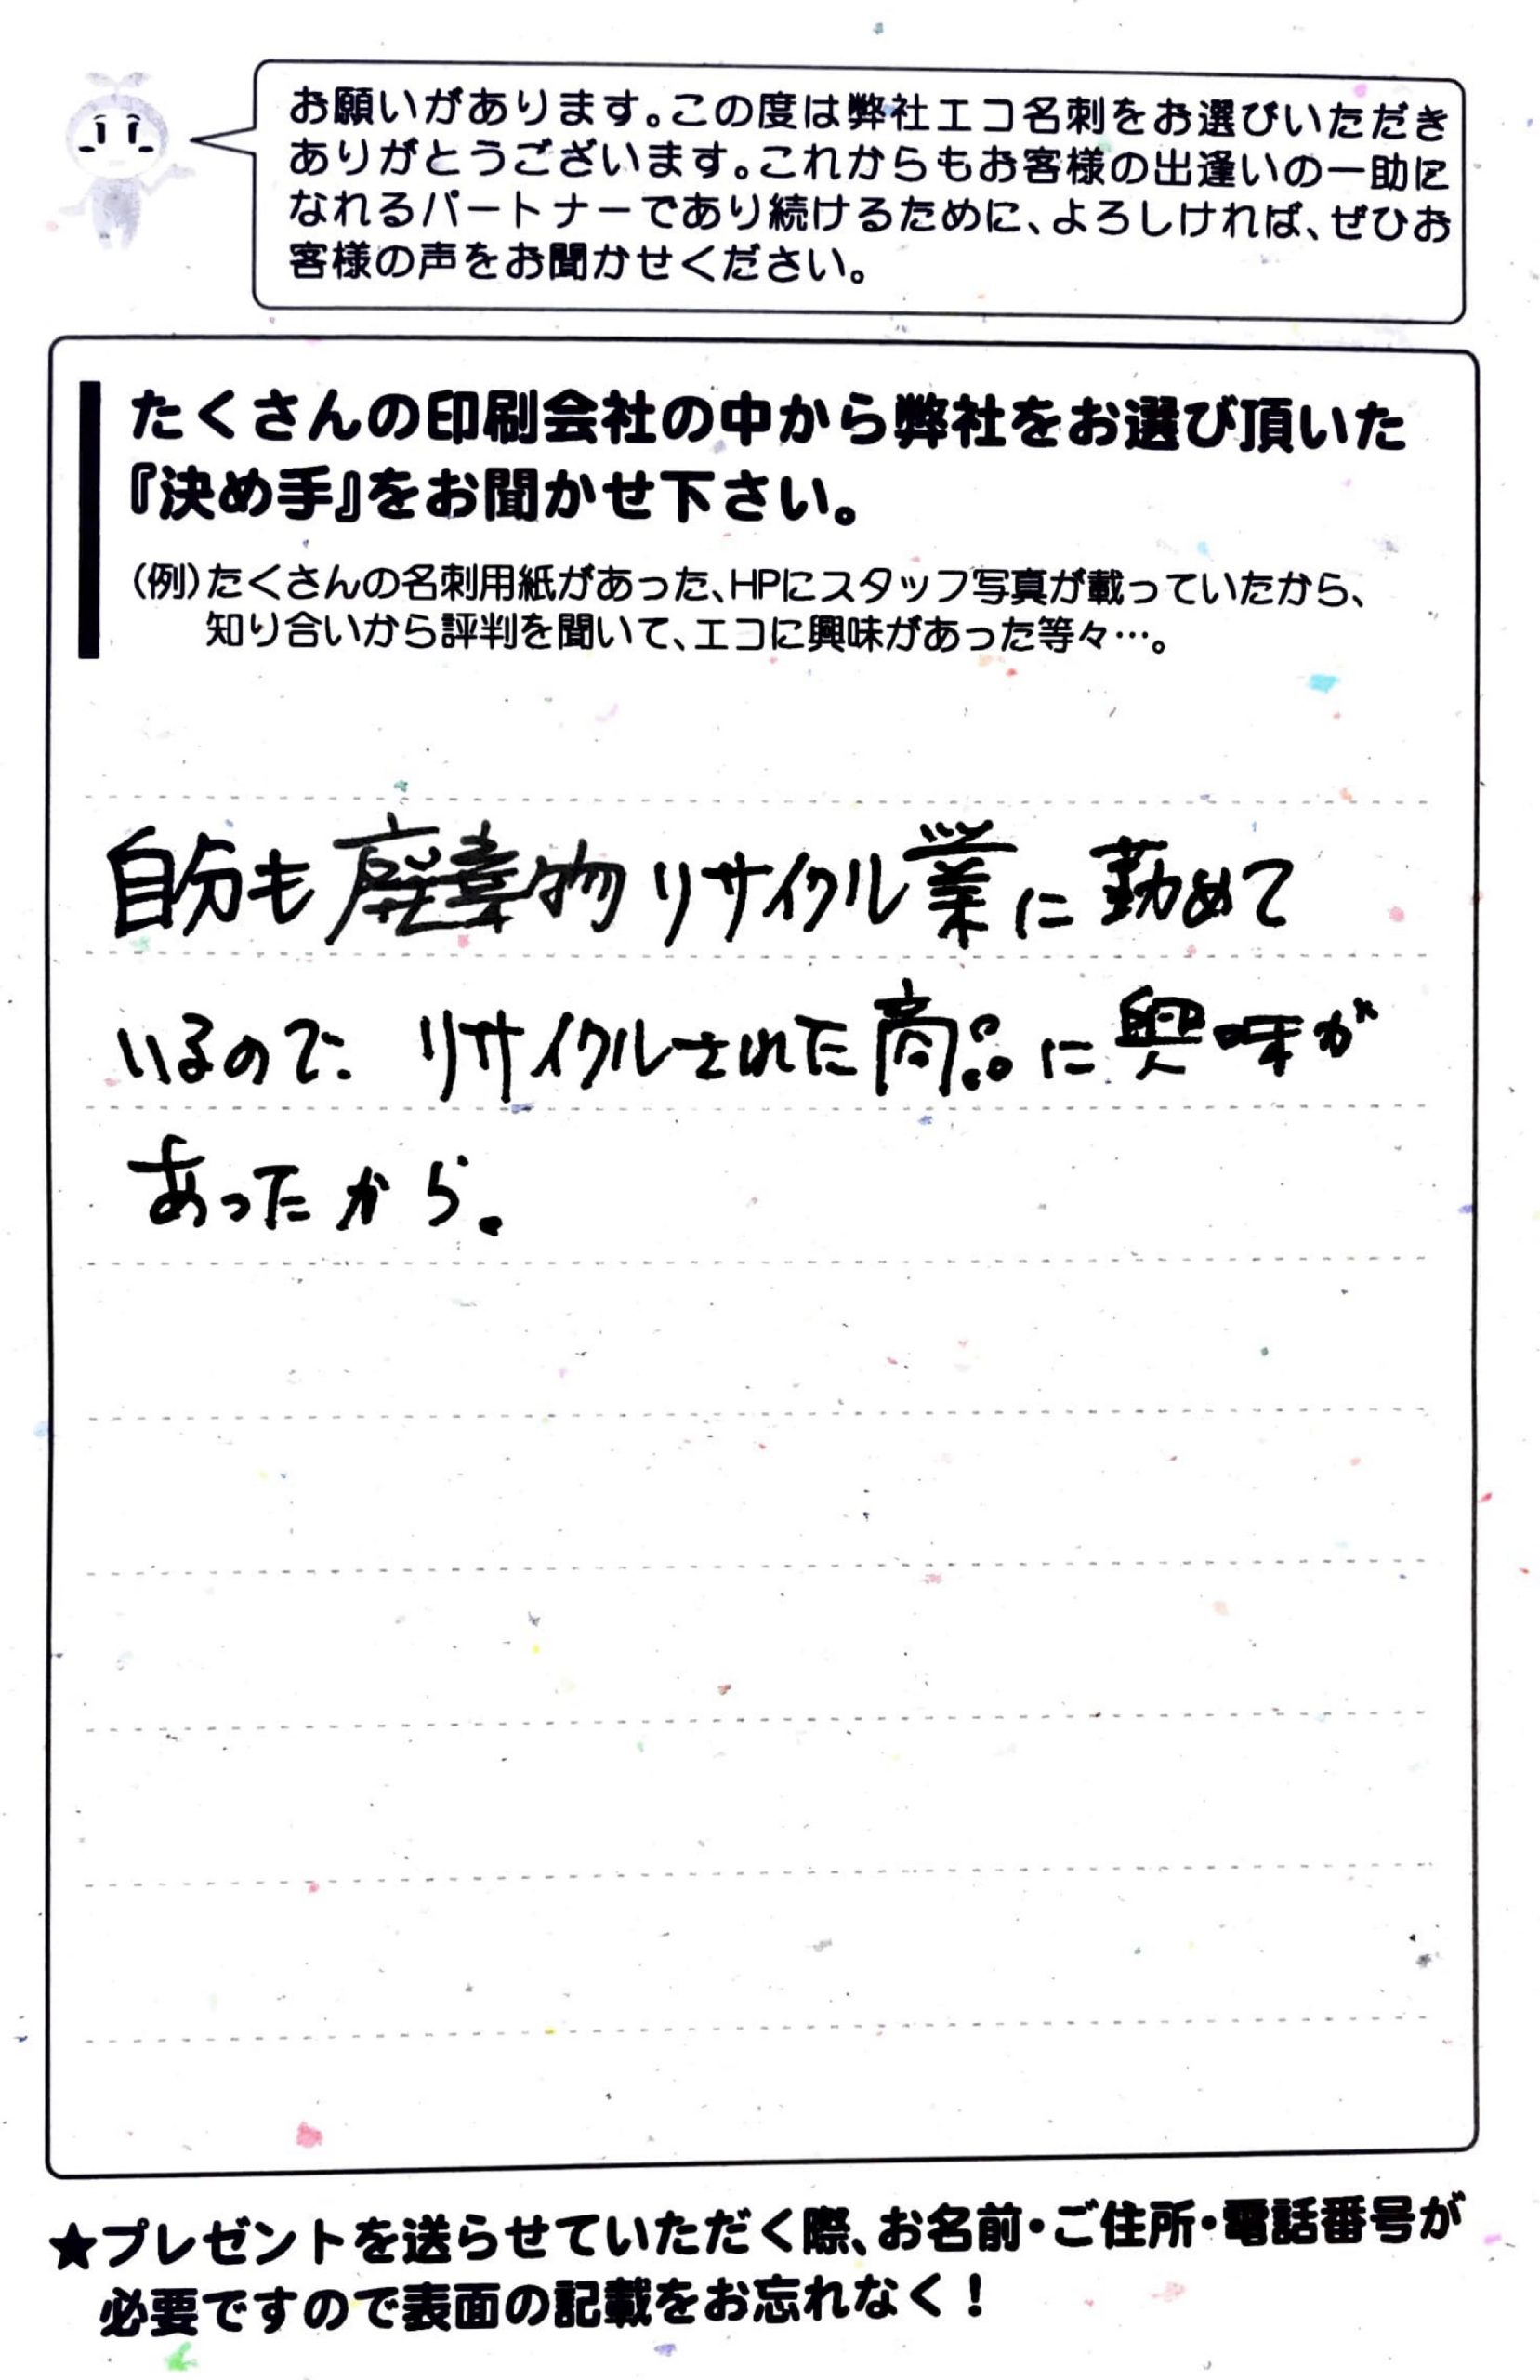 お願いがあります。この度は弊社エコ名刺をお選びいただき
ありがとうございます。これからもお客様の出逢いの一助に
なれるパートナーであり続けるために、よろしければ、ぜひお
客様の声をお聞かせください。
たくさんの印刷会社の中から弊社をお選び頂いた
『決め手』をお聞かせ下さい。
(例)たくさんの名刺用紙があった、HPにスタッフ写真が載っていたから、
知り合いから評判を聞いて、エコに興味があった等々…。
自分も廃棄物リサイクル業に勤めて
いるので、リサイクルされた商品に興味が
あったから。
★プレゼントを送らせていただく際、お名前・ご住所・電話番号が
必要ですので表面の記載をお忘れなく!